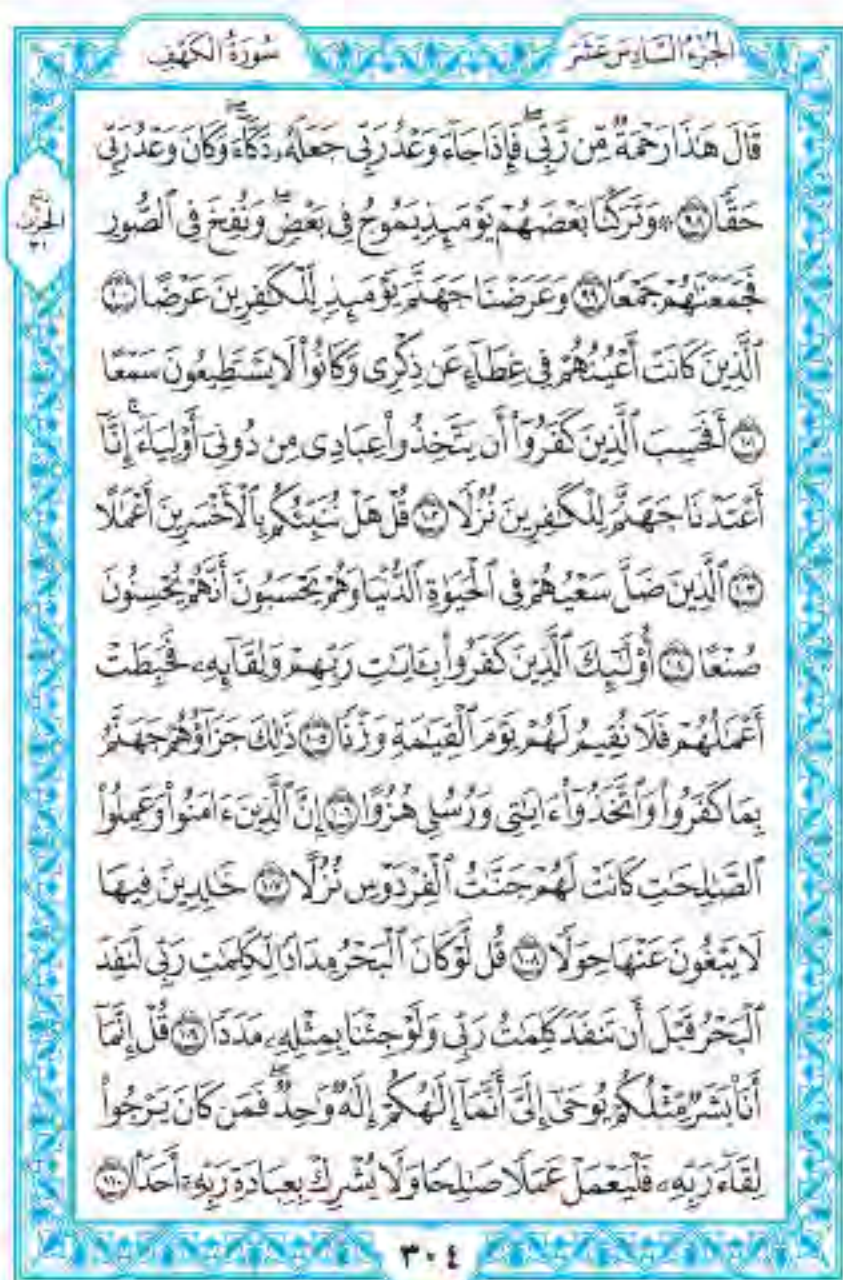 الجزء السادس عشر
سورة الكهف
قَالَ هَٰذَا رَحْمَةٌ مِّن رَّبِّي ۖ فَإِذَا جَاءَ وَعْدُ رَبِّي جَعَلَهُ دَكَّاءَ ۖ وَكَانَ وَعْدُ رَبِّي
حَقًّا ٩٨ ۞ وَتَرَكْنَا بَعْضَهُمْ يَوْمَئِذٍ يَمُوجُ فِي بَعْضٍ ۖ وَنُفِخَ فِي الصُّورِ
فَجَمَعْنَاهُمْ جَمْعًا ٩٩ وَعَرَضْنَا جَهَنَّمَ يَوْمَئِذٍ لِّلْكَافِرِينَ عَرْضًا ١٠٠
الَّذِينَ كَانَتْ أَعْيُنُهُمْ فِي غِطَاءٍ عَن ذِكْرِي وَكَانُوا لَا يَسْتَطِيعُونَ سَمْعًا
١٠١ أَفَحَسِبَ الَّذِينَ كَفَرُوا أَن يَتَّخِذُوا عِبَادِي مِن دُونِي أَوْلِيَاءَ ۚ إِنَّا
أَعْتَدْنَا جَهَنَّمَ لِلْكَافِرِينَ نُزُلًا ١٠٢ قُلْ هَلْ نُنَبِّئُكُم بِالْأَخْسَرِينَ أَعْمَالًا
١٠٣ الَّذِينَ ضَلَّ سَعْيُهُمْ فِي الْحَيَاةِ الدُّنْيَا وَهُمْ يَحْسَبُونَ أَنَّهُمْ يُحْسِنُونَ
صُنْعًا ١٠٤ أُولَٰئِكَ الَّذِينَ كَفَرُوا بِآيَاتِ رَبِّهِمْ وَلِقَائِهِ فَحَبِطَتْ
أَعْمَالُهُمْ فَلَا نُقِيمُ لَهُمْ يَوْمَ الْقِيَامَةِ وَزْنًا ١٠٥ ذَٰلِكَ جَزَاؤُهُمْ جَهَنَّمُ
بِمَا كَفَرُوا وَاتَّخَذُوا آيَاتِي وَرُسُلِي هُزُوًا ١٠٦ إِنَّ الَّذِينَ آمَنُوا وَعَمِلُوا
الصَّالِحَاتِ كَانَتْ لَهُمْ جَنَّاتُ الْفِرْدَوْسِ نُزُلًا ١٠٧ خَالِدِينَ فِيهَا
لَا يَبْغُونَ عَنْهَا حِوَلًا ١٠٨ قُل لَّوْ كَانَ الْبَحْرُ مِدَادًا لِّكَلِمَاتِ رَبِّي لَنَفِدَ
الْبَحْرُ قَبْلَ أَن تَنفَدَ كَلِمَاتُ رَبِّي وَلَوْ جِئْنَا بِمِثْلِهِ مَدَدًا ١٠٩ قُلْ إِنَّمَا
أَنَا بَشَرٌ مِّثْلُكُمْ يُوحَىٰ إِلَيَّ أَنَّمَا إِلَٰهُكُمْ إِلَٰهٌ وَاحِدٌ ۖ فَمَن كَانَ يَرْجُو
لِقَاءَ رَبِّهِ فَلْيَعْمَلْ عَمَلًا صَالِحًا وَلَا يُشْرِكْ بِعِبَادَةِ رَبِّهِ أَحَدًا ١١٠
الحزب
٣١
٣٠٤